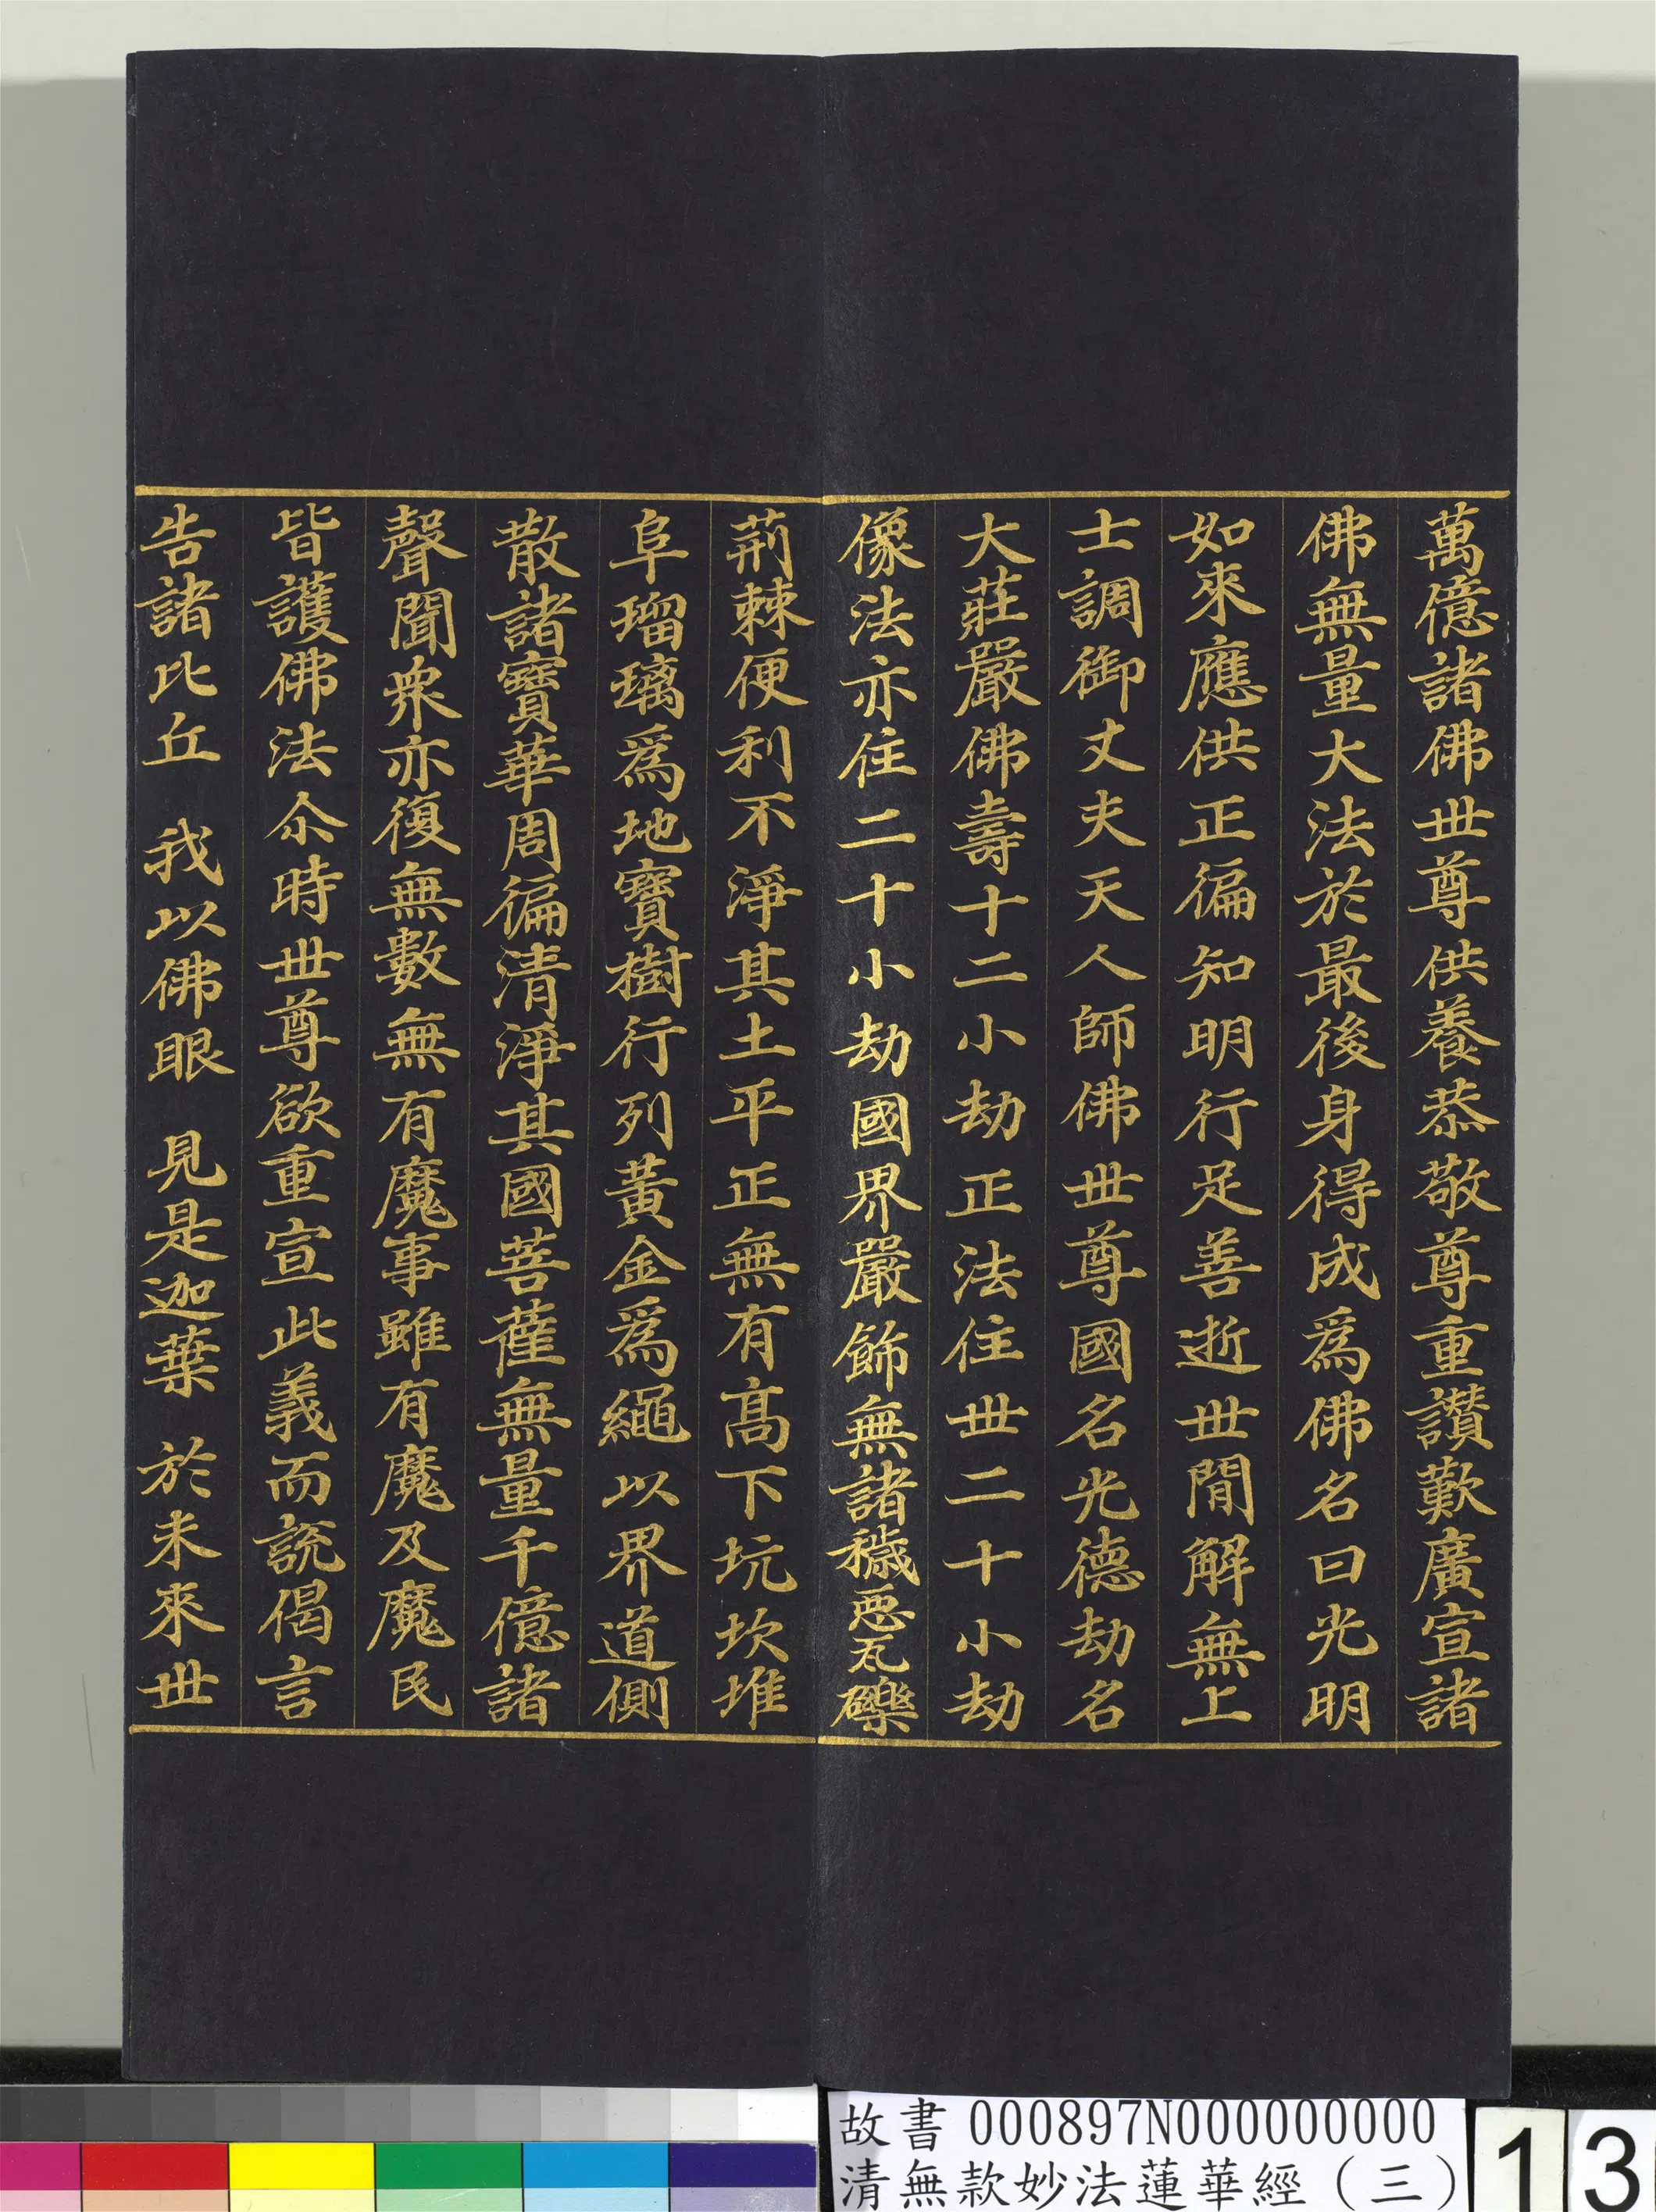 萬億諸佛世尊供養恭敬尊重讚歎廣宣諸
佛無量大法於最後身得成爲佛名曰光明
如來應供正徧知明行足善逝世間解無上
士調御丈夫天人師佛世尊國名光德劫名
大莊嚴佛壽十二小劫正法住世二十小劫
像法亦住二十小劫國界嚴飾無諸穢惡瓦礫
荊棘便利不淨其土平正無有高下坑坎堆
阜瑠璃爲地寶樹行列黃金爲繩以界道側
散諸寶華周徧清淨其國菩薩無量千億諸
聲聞衆亦復無數無有魔事雖有魔及魔民
皆護佛法尒時世尊欲重宣此義而說偈言
告諸比丘 我以佛眼 見是迦葉 於未來世
故書 000897N000000000
清無款妙法蓮華經(三)
13